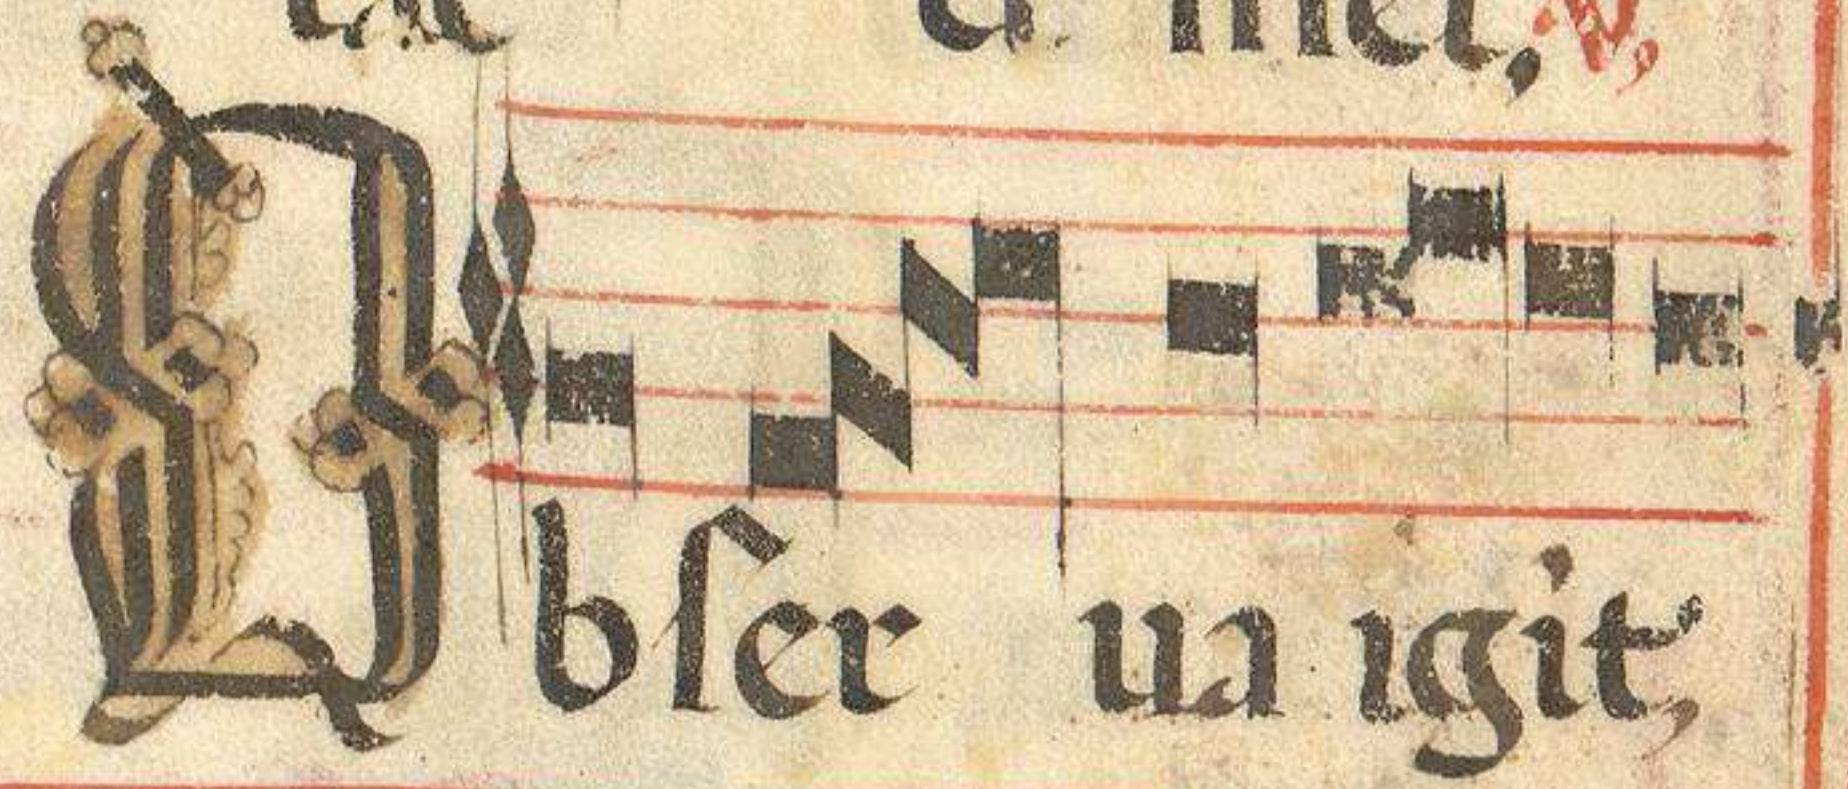 met, ℣,
Obſer ua igit,